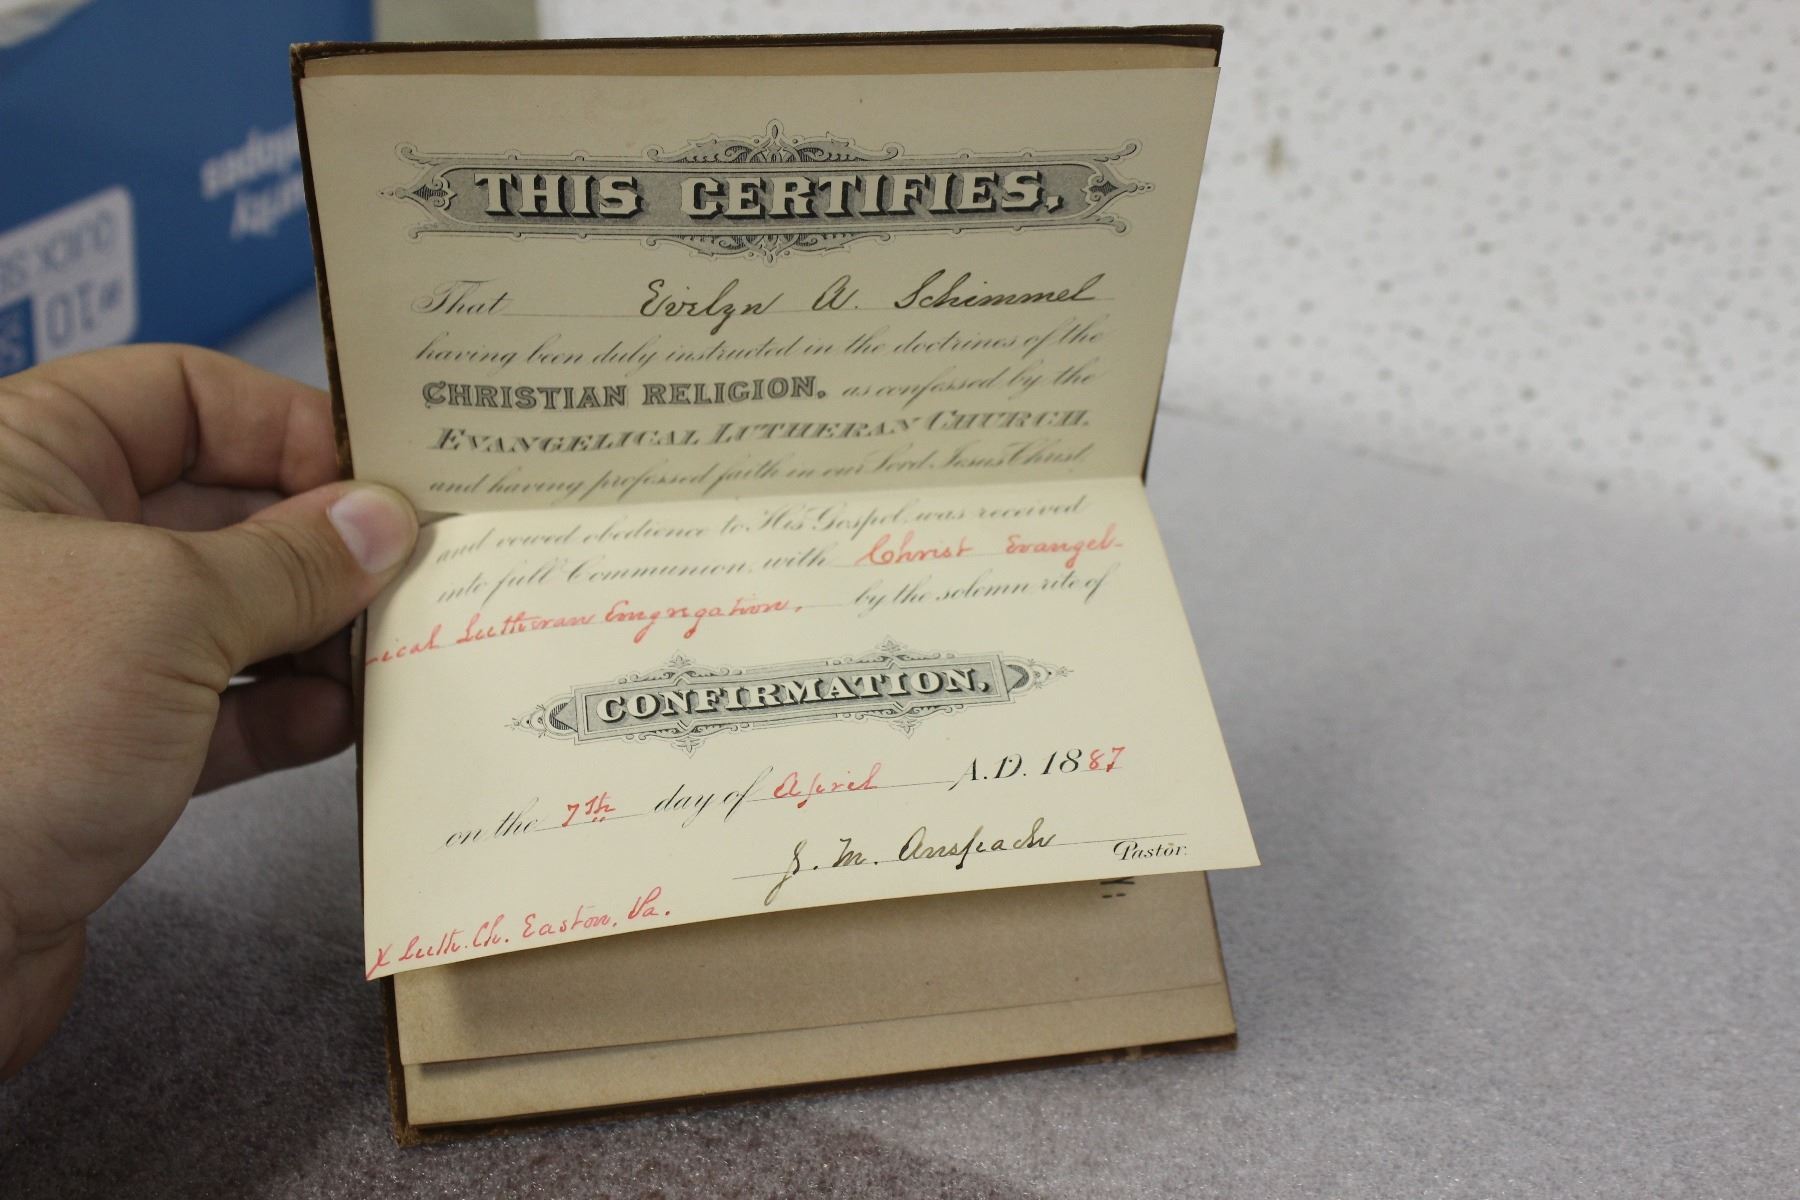 THIS CERTIFIES,
That Evelyn A. Schimmel
having been duly instructed in the doctrines of the
CHRISTIAN RELIGION, as confessed by the
EVANGELICAL LUTHERAN CHURCH,
and having professed faith in our Lord Jesus Christ
and vowed obedience to His Gospel, was received
into full Communion, with Christ Evangel-
-ical Lutheran Congregation, by the solemn rite of
CONFIRMATION,
on the 7th day of April A.D. 1887
J. M. Anspach Pastor.
X Luth. Ch. Easton, Pa.